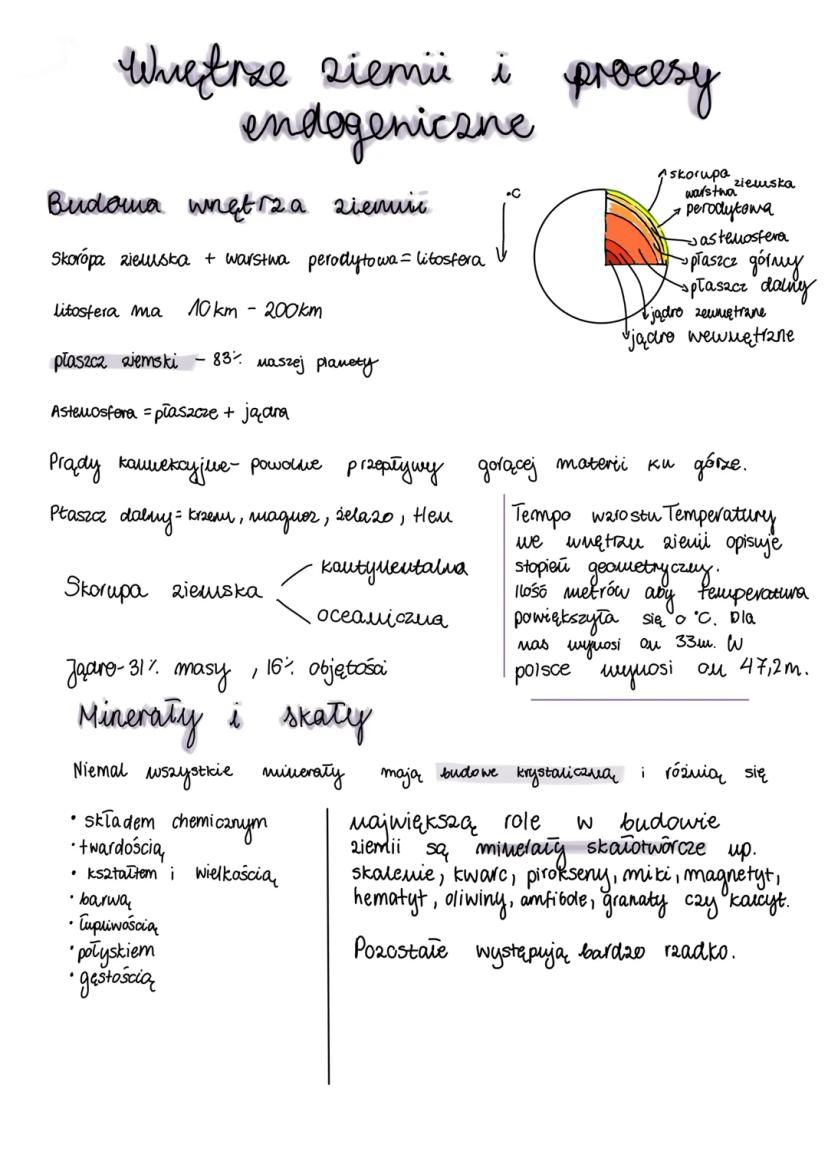 Wnętrze ziemii i procesy
endogeniczne
Budowa wnętrza ziemii
°C
skorupa
ziemska
warstwa
perodytowa
astenosfera
płaszcz górny
płaszcz dalny
jądro zewnętrzne
jądro wewnętrzne
Skorópa ziemska + warstwa perodytowa = litosfera
litosfera ma 10km - 200km
płaszcz ziemski - 83% naszej planety
Astenosfera = płaszcze + jądra
Prądy konwekcyjne- powolne przepływy gorącej materii ku górze.
Płaszcz dalny= krzem, magnez, żelazo, tlen
Skorupa ziemska
kontynentalna
oceaniczna
Jądro- 31% masy , 16% objętości
Tempo wzrostu Temperatury
we wnętrzu ziemii opisuje
stopień geometryczny.
Ilość metrów aby temperatura
powiększyła się o °C. Dla
nas wynosi on 33m. W
polsce wynosi on 47,2m.
Minerały i skały
Niemal wszystkie minerały mają budowe krystaliczną i różnią się
• składem chemicznym
• twardością
• kształtem i wielkością
• barwą
• łupliwością
• połyskiem
• gęstością
największą role w budowie
ziemii są minerały skałotwórcze np.
skalenie, kwarc, pirokseny, miki, magnetyt,
hematyt, oliwiny, amfibole, granaty czy kalcyt.
Pozostałe występują bardzo rzadko.